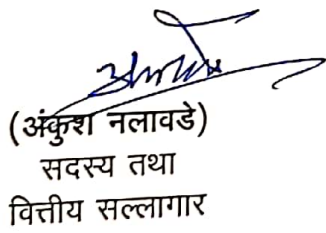 (अंकुश नलावडे)
सदस्य तथा
वित्तीय सल्लागार